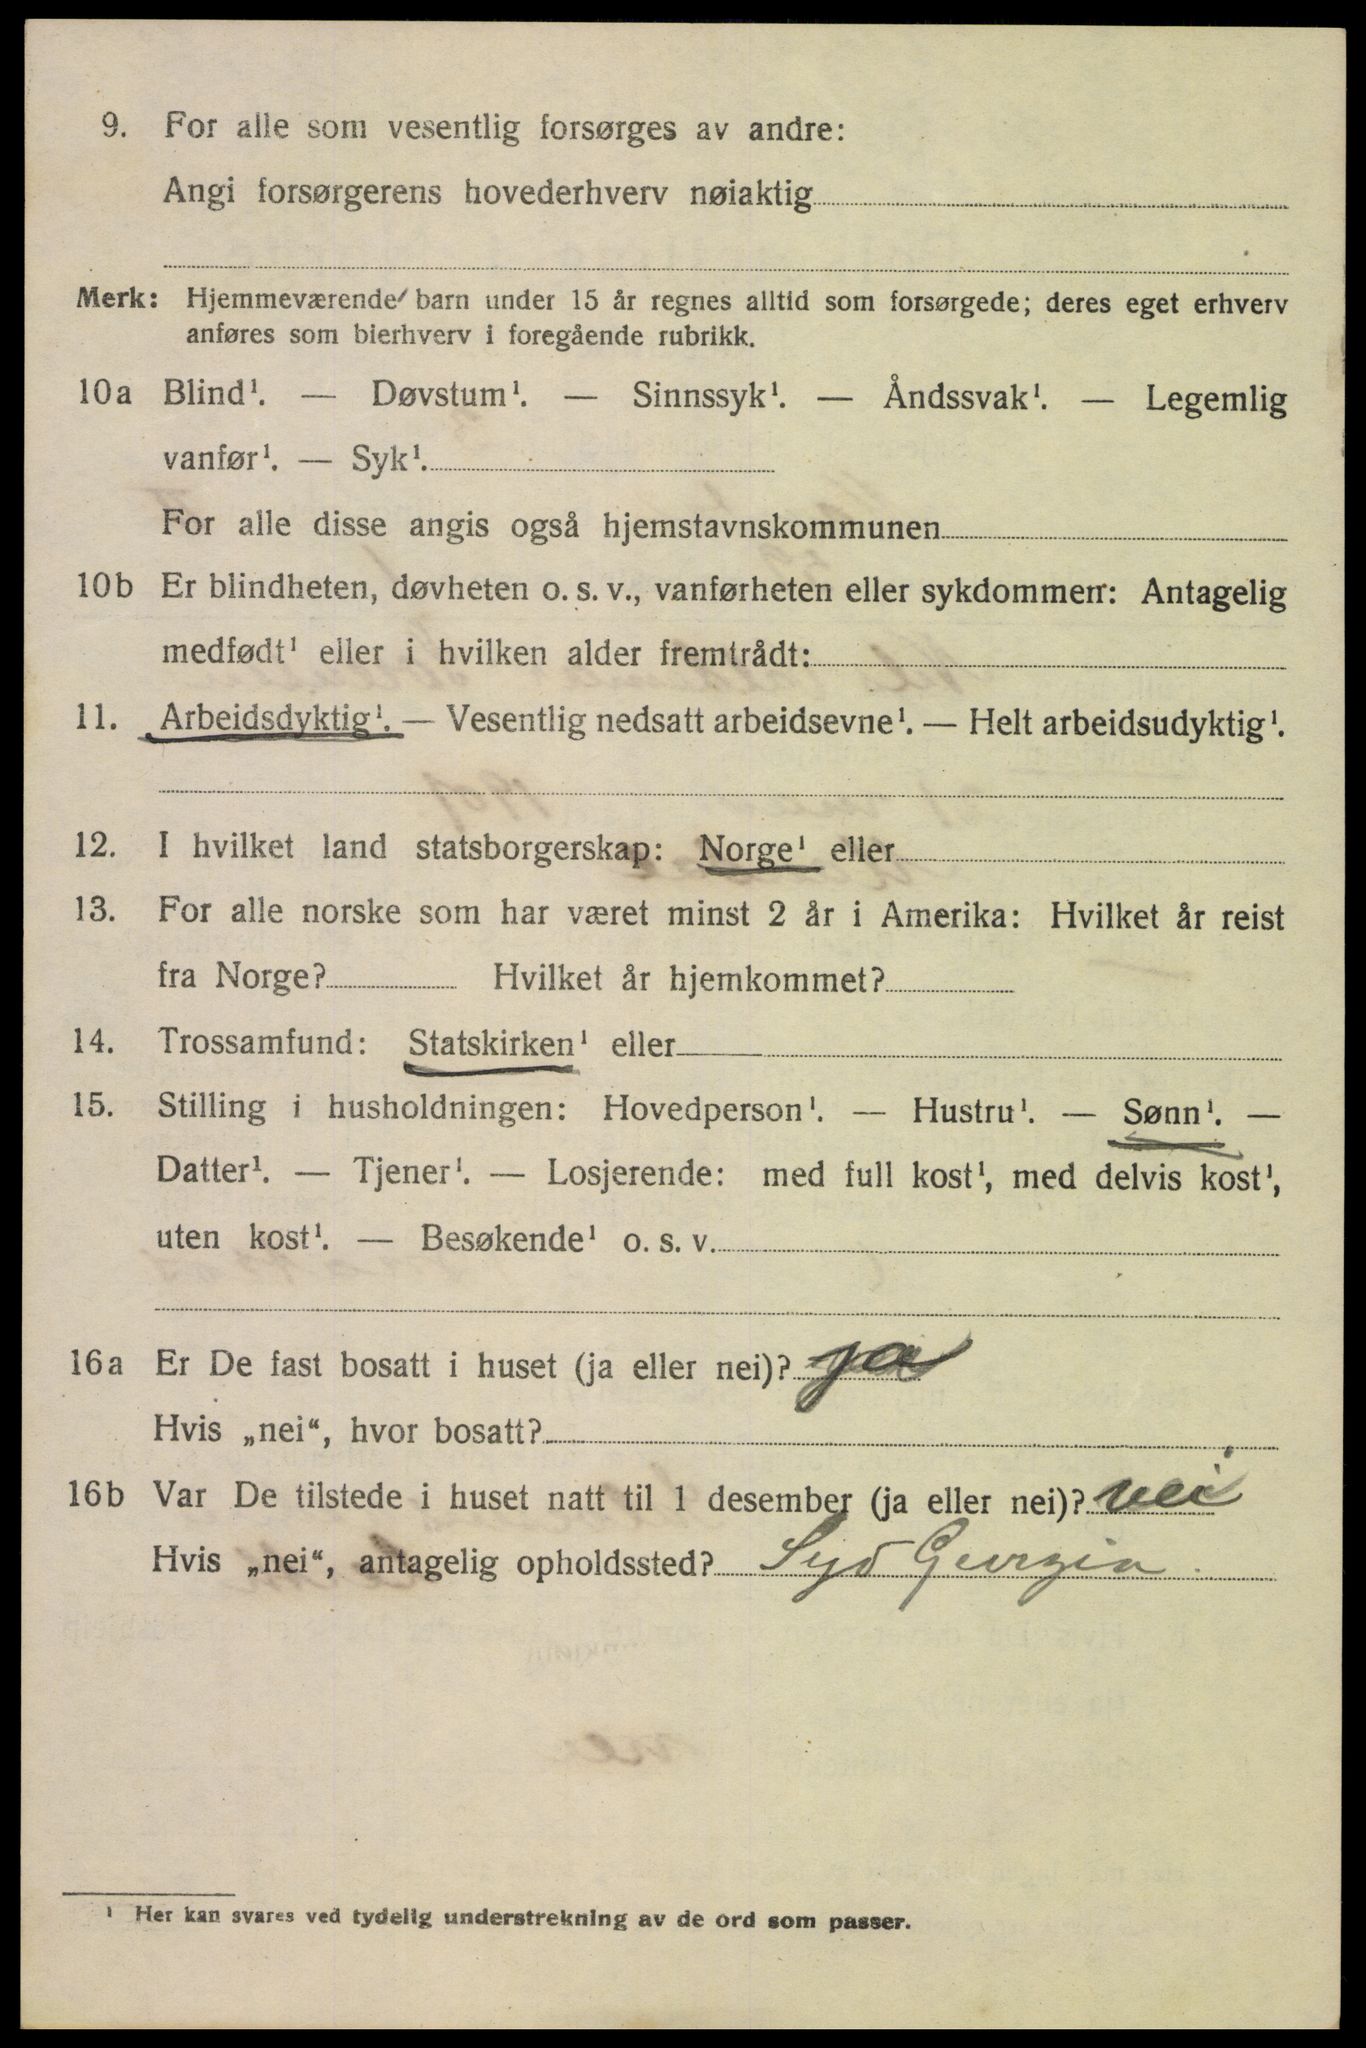 9. For alle som vesentlig forsørges av andre:
Angi forsørgerens hovederhverv nøiaktig
Merk: Hjemmeværende barn under 15 år regnes alltid som forsørgede; deres eget erhverv
anføres som bierhverv i foregående rubrikk.
10a Blind¹. — Døvstum¹. — Sinnssyk¹. — Åndssvak¹. — Legemlig
vanfør¹. — Syk¹.
For alle disse angis også hjemstavnskommunen
10b Er blindheten, døvheten o. s. v., vanførheten eller sykdommen: Antagelig
medfødt¹ eller i hvilken alder fremtrådt:
11. Arbeidsdyktig¹. — Vesentlig nedsatt arbeidsevne¹. — Helt arbeidsudyktig¹.
12. I hvilket land statsborgerskap: Norge¹ eller
13. For alle norske som har været minst 2 år i Amerika: Hvilket år reist
fra Norge? Hvilket år hjemkommet?
14. Trossamfund: Statskirken¹ eller
15. Stilling i husholdningen: Hovedperson¹. — Hustru¹. — Sønn¹. —
Datter¹. — Tjener¹. — Losjerende: med full kost¹, med delvis kost¹,
uten kost¹. — Besøkende¹ o. s. v.
16a Er De fast bosatt i huset (ja eller nei)? ja
Hvis „nei“, hvor bosatt?
16b Var De tilstede i huset natt til 1 desember (ja eller nei)? nei
Hvis „nei“, antagelig opholdssted? Syd Georgia
¹ Her kan svares ved tydelig understrekning av de ord som passer.